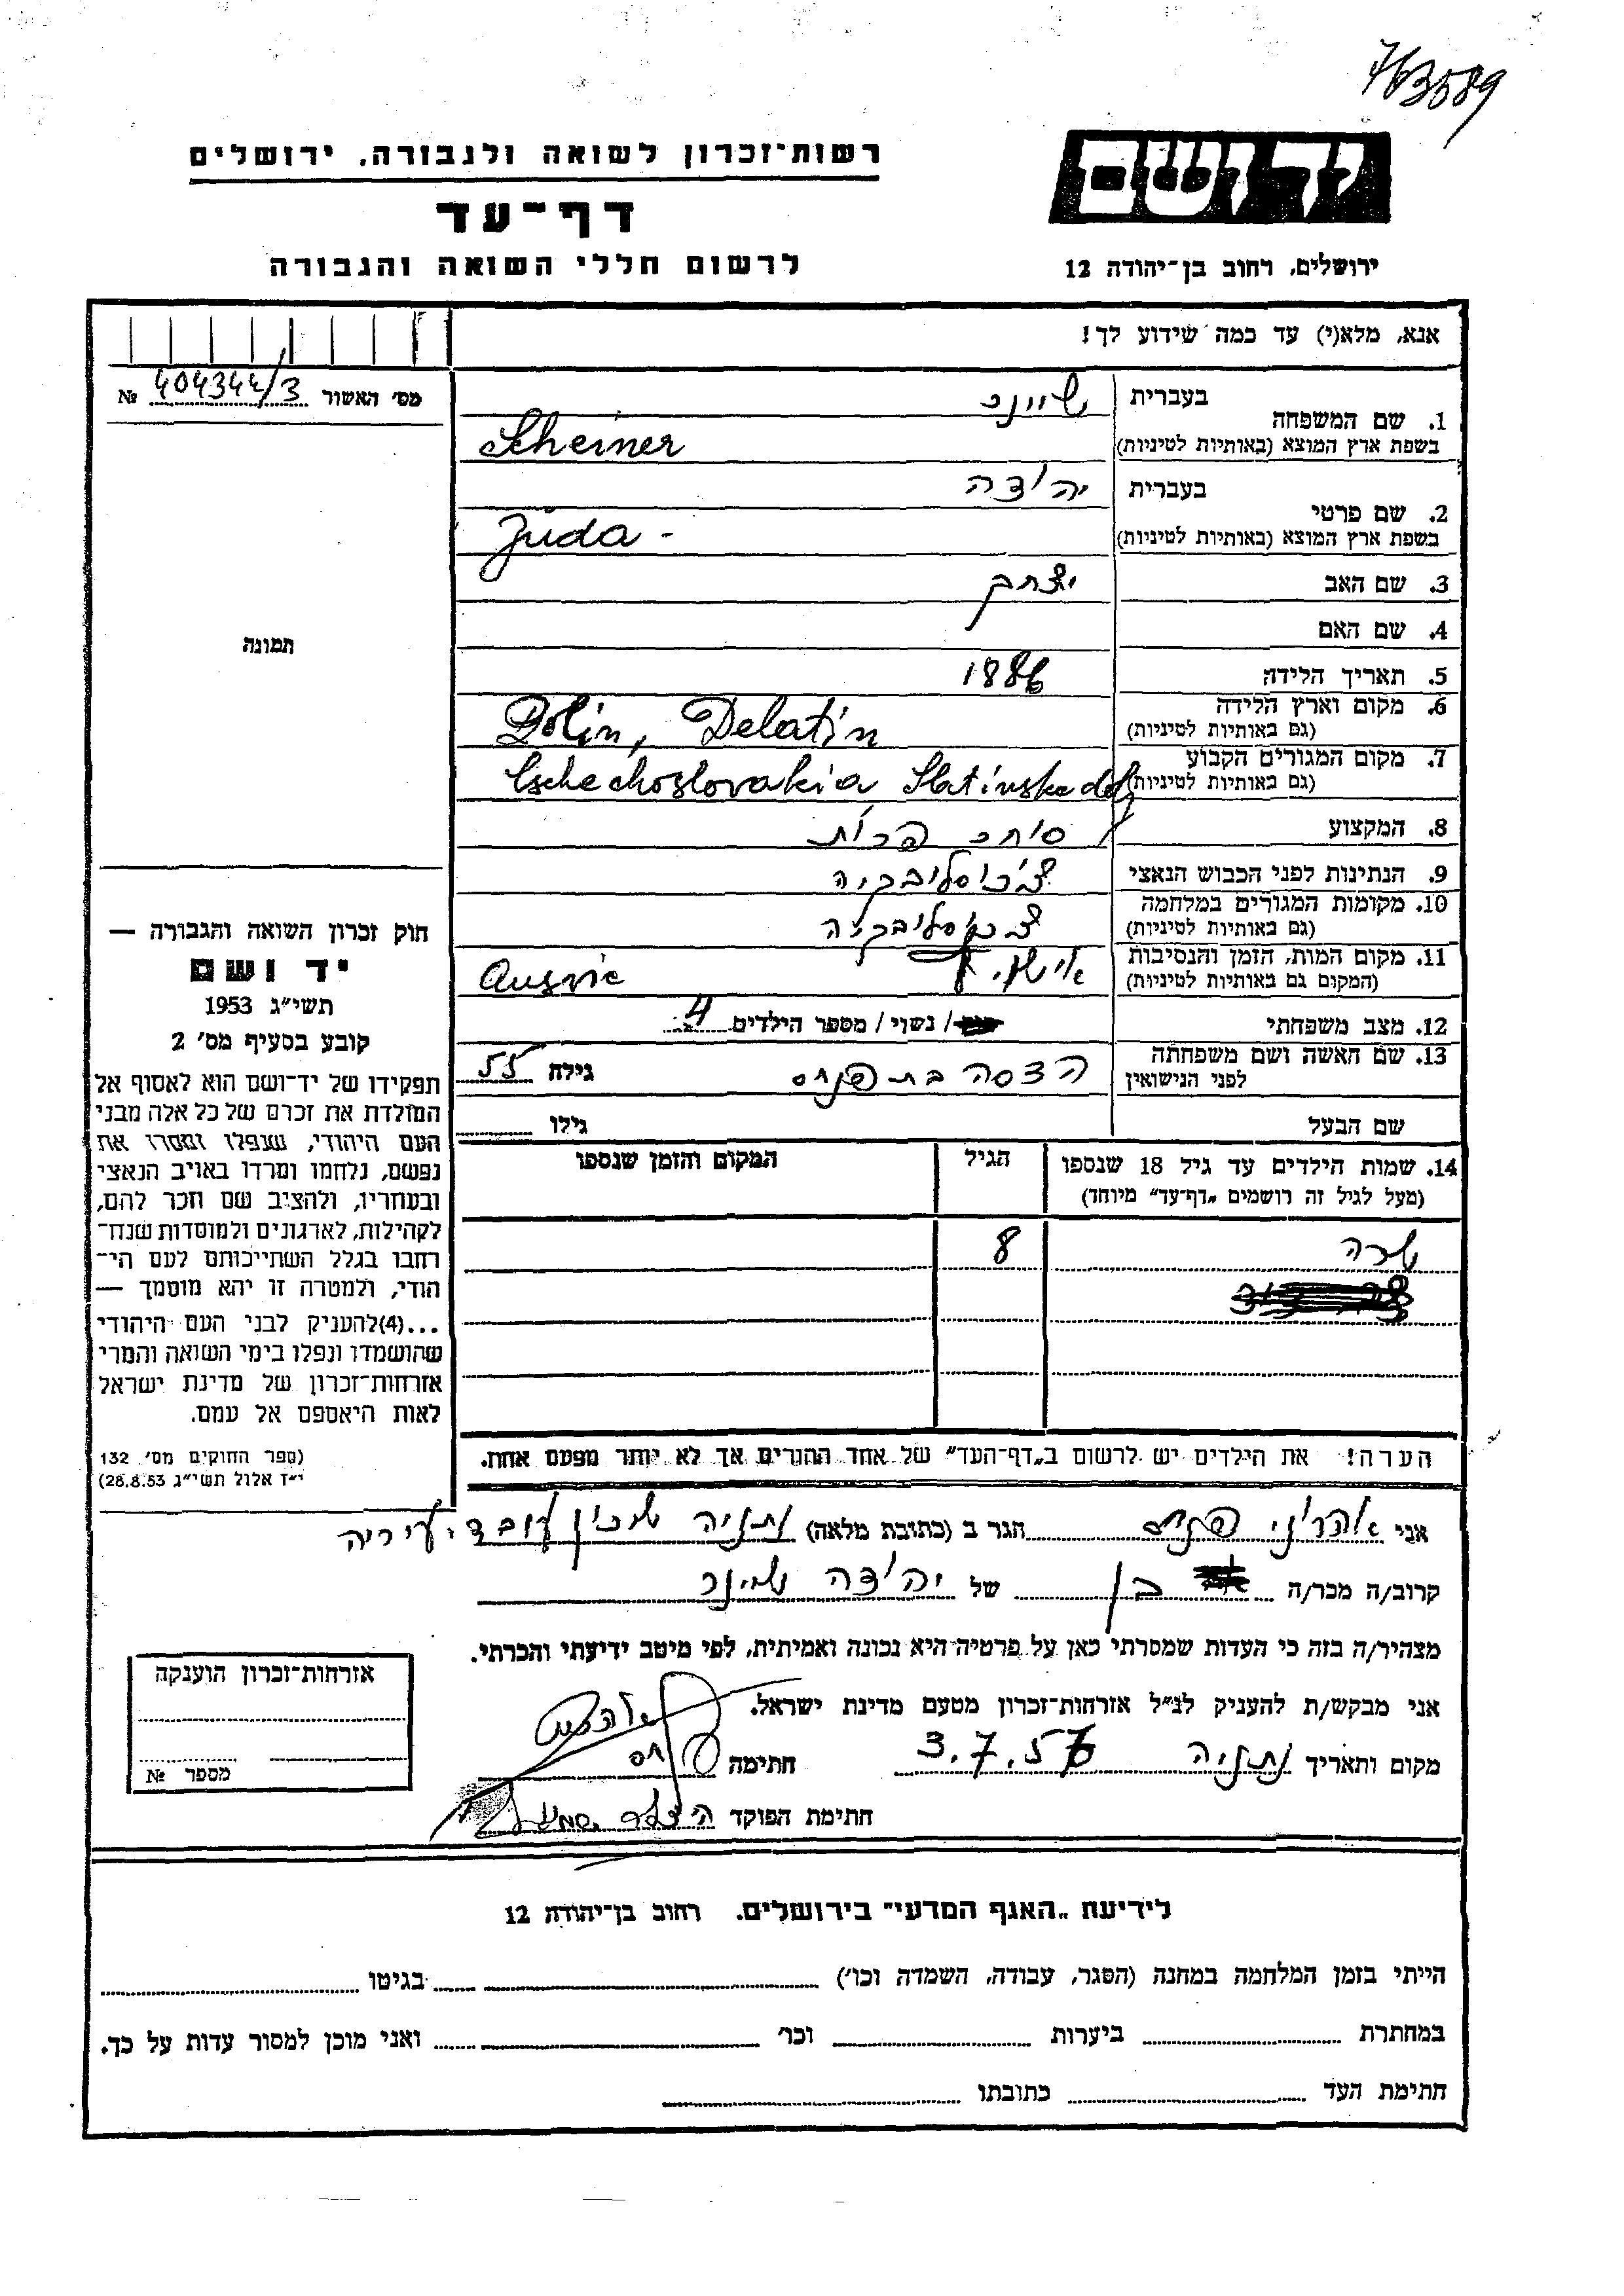 763589
רשות-זכרון לשואה ולגבורה, ירושלים
יד ושם
דף-עד
לרשום חללי השואה והגבורה
ירושלים, רחוב בן-יהודה 12
אנא, מלא(י) עד כמה שידוע לך!
מס' האשור 404344/3 №
1. שם המשפחה בעברית שיינר
בשפת ארץ המוצא (באותיות לטיניות) Scheiner
2. שם פרטי בעברית יהודה
בשפת ארץ המוצא (באותיות לטיניות) Juda -
3. שם האב יצחק
4. שם האם
תמונה
5. תאריך הלידה 1886
6. מקום וארץ הלידה
(גם באותיות לטיניות) Polin, Delatin
7. מקום המגורים הקבוע
(גם באותיות לטיניות) Tschechoslovakia Slatinske doly
8. המקצוע סוחר פרות
9. הנתינות לפני הכבוש הנאצי צ'כוסלובקיה
10. מקומות המגורים במלחמה
(גם באותיות לטיניות) צ'כוסלובקיה
11. מקום המות, הזמן והנסיבות
(המקום גם באותיות לטיניות) Ausvic
12. מצב משפחתי / נשוי / מספר הילדים 4
13. שם האשה ושם משפחתה
לפני הנישואין הדסה בת פנחס גילה 55
שם הבעל גילו
14. שמות הילדים עד גיל 18 שנספו הגיל המקום והזמן שנספו
(מעל לגיל זה רושמים „דף-עד" מיוחד)
שרה 8
הערה! את הילדים יש לרשום ב„דף-העד" של אחד ההורים אך לא יותר מפעם אחת.
חוק זכרון השואה והגבורה —
יד ושם
תשי"ג 1953
קובע בסעיף מס' 2
תפקידו של יד-ושם הוא לאסוף אל
המולדת את זכרם של כל אלה מבני
העם היהודי, שנפלו ומסרו את
נפשם, נלחמו ומרדו באויב הנאצי
ובעוזריו, ולהציב שם וזכר להם,
לקהילות, לארגונים ולמוסדות שנח-
רבו בגלל השתייכותם לעם הי-
הודי, ולמטרה זו יהא מוסמך —
...(4)להעניק לבני העם היהודי
שהושמדו ונפלו בימי השואה והמרי
אזרחות-זכרון של מדינת ישראל
לאות היאספם אל עמם.
(ספר החוקים מס' 132
י"ז אלול תשי"ג 28.8.53)
אני אהרוני פנחס הגר ב (כתובת מלאה) נתניה שיכון עובדי עיריה
קרוב/ה מכר/ה בן של יהודה שיינר
מצהיר/ה בזה כי העדות שמסרתי כאן על פרטיה היא נכונה ואמיתית, לפי מיטב ידיעתי והכרתי.
אני מבקש/ת להעניק לנ"ל אזרחות-זכרון מטעם מדינת ישראל.
מקום ותאריך נתניה 3.7.57 חתימה
חתימת הפוקד
אזרחות-זכרון הוענקה
מספר №
לידיעת „האגף המדעי" בירושלים. רחוב בן-יהודה 12
הייתי בזמן המלחמה במחנה (הסגר, עבודה, השמדה וכו') בגיטו
במחתרת ביערות וכו' ואני מוכן למסור עדות על כך.
חתימת העד כתובתו